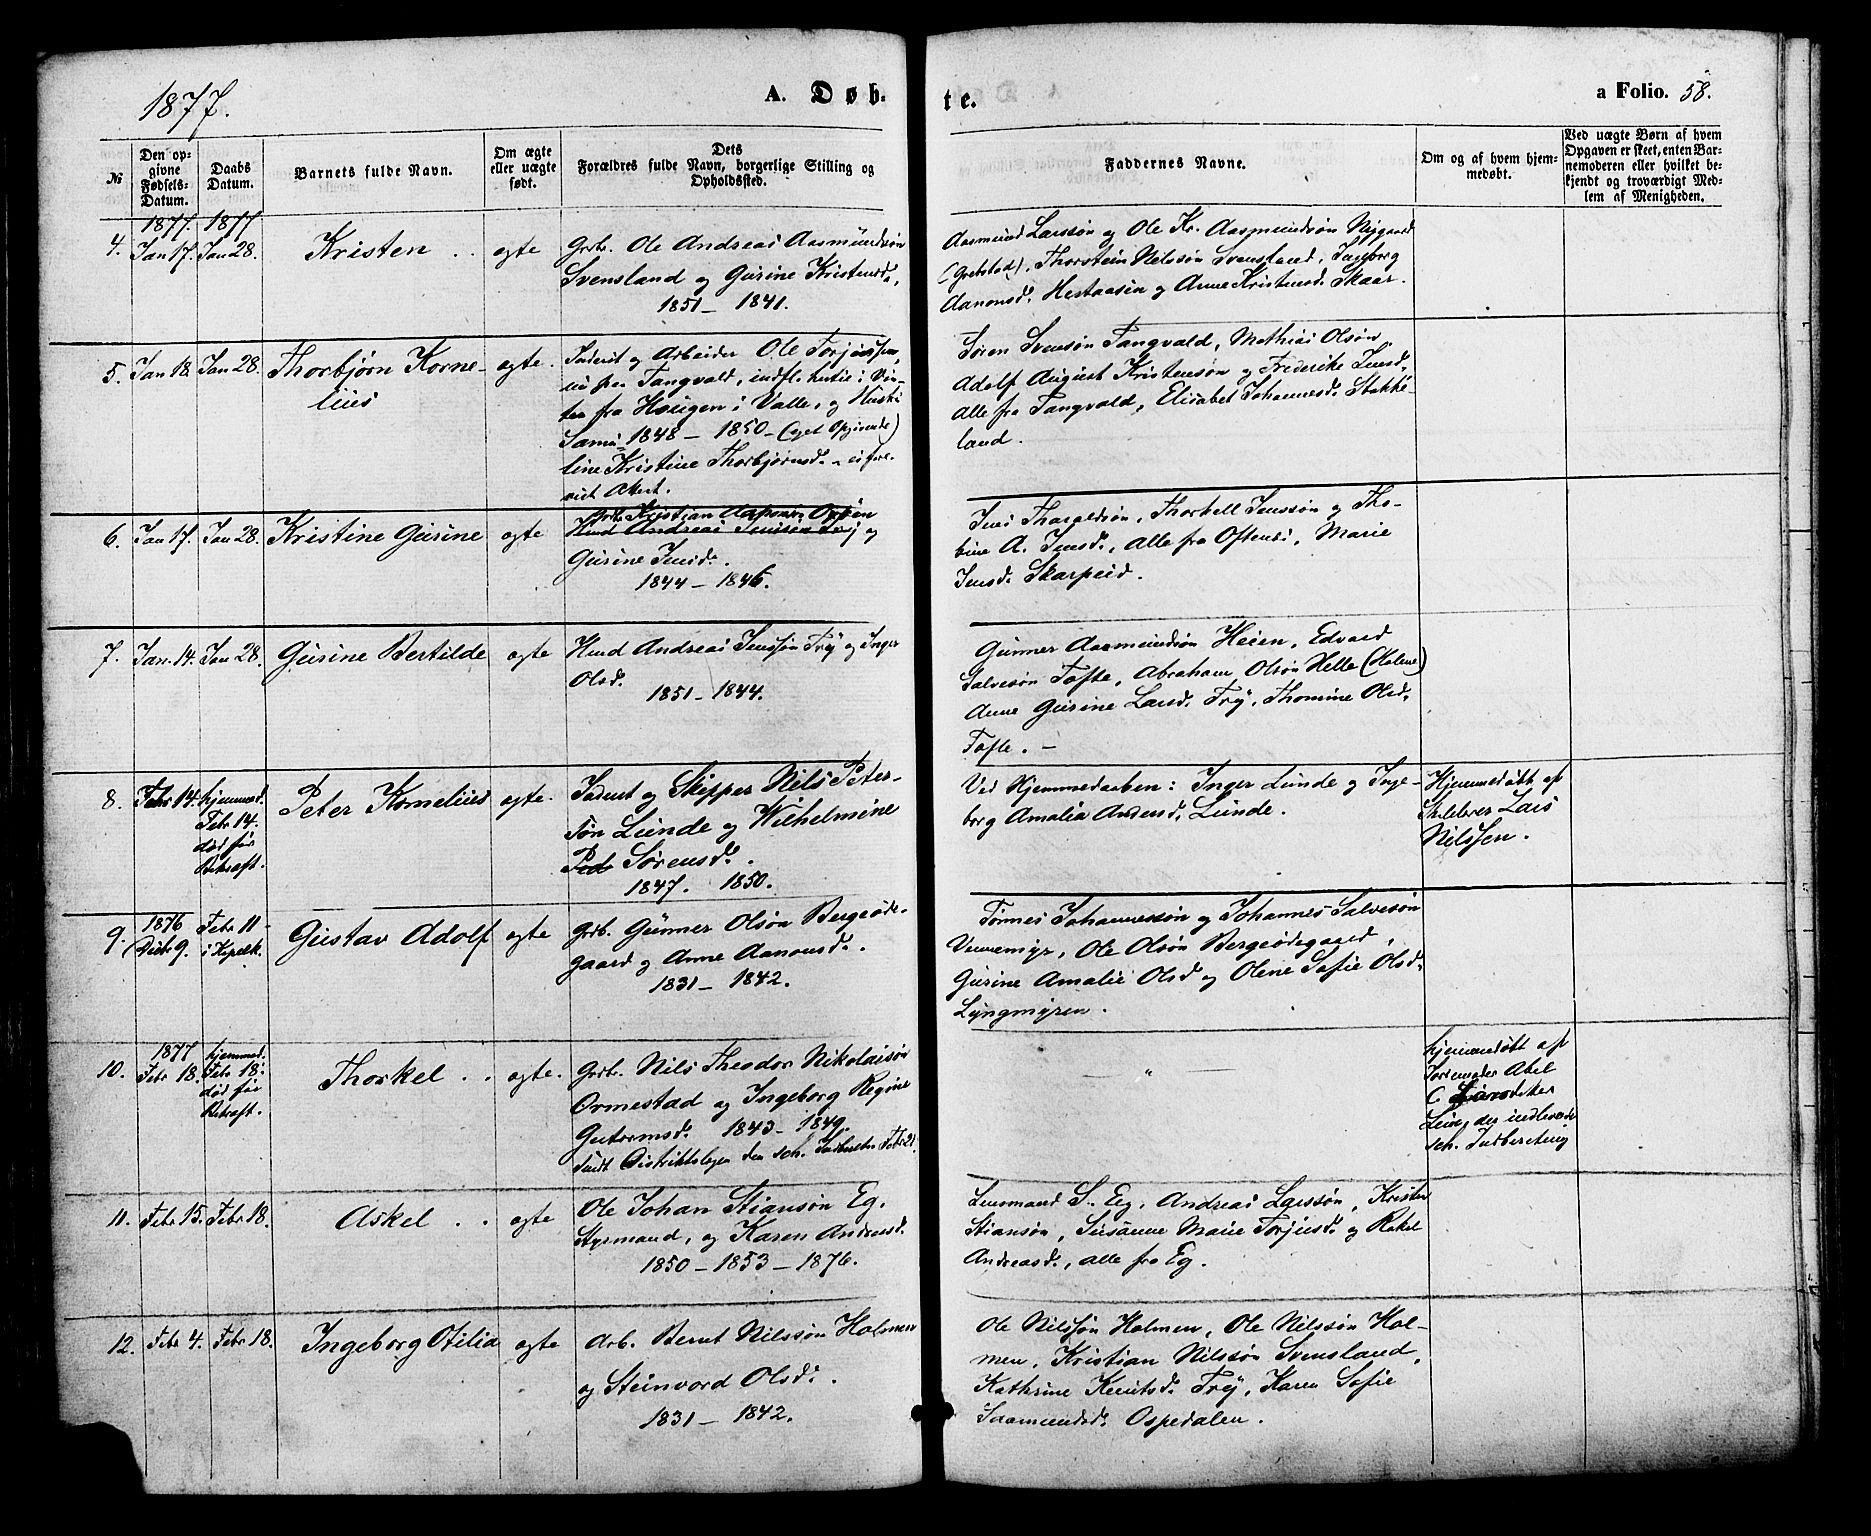 1877.
A. Døb-
te.
a Folio. 58.
№
Den op-
givne
Fødsels-
Datum.
Daabs
Datum.
Barnets fulde Navn.
Om ægte
eller uægte
født.
Dets
Forældres fulde Navn, borgerlige Stilling og
Opholdssted.
Faddernes Navne.
Om og af hvem hjem-
medøbt.
Ved uægte Børn af hvem
Opgaven er skeet, enten Bar-
nemoderen eller hvilket be-
kjendt og troværdigt Med-
lem af Menigheden.
1877. 1877
4. Jan 17. Jan 28. Kristen . . ægte
Grbr. Ole Andreas Aasmundsøn
Svensland og Gurine Kristensd.
1851 - 1841.
Aasmund Larssøn og Ole Kr. Aasmundsøn Nygaard
(Grebstad), Thorstein Nilssøn Svensland, Ingeborg
Aanonsd. Hestaasen og Anne Kristensd. Skaar.
5. Jan 18. Jan 28. Thorbjørn Korne-
lius
ægte.
Inderst og Arbeider Ole Torjussen,
nu paa Tangvald, indfl. hertil i Vin-
ter fra Hougen i Valle, og Hustru
Samu- 1848 - 1850 - (eget Opgivende)
line Kristine Thorbjørnsd.
Attest.
Søren Svensøn Tangvald, Mathias Olsøn,
Adolf August Kristensøn og Frederikke Jensd.
alle fra Tangvald, Elisabet Johannesd. Stokke-
land.
6. Jan 17. Jan 28. Kristine Gurine ægte
Grbr. Kristian Aanonsøn
Knud Andreas Jenssøn Trÿ og
Gurine Jensd.
1844 - 1846.
Jens Tharaldsøn, Thorkell Jenssøn og Tho-
bine A. Jensd., alle fra Oftenes, Marie
Jensd. Skarpeid.
7. Jan. 14. Jan 28. Gurine Bertilde ægte
Knud Andreas Jenssøn Trÿ og Inger
Olsd.
1851 - 1844.
Gunner Aasmundsøn Heien, Edvard
Salvesøn Tofte, Abraham Olsøn Helle (Holene)
Anne Gurine Larsd. Trÿ, Thomine Olsd.
Tofte. -
8. Febr 14. hjemmed.
Febr 14.
død før
Bekræft.
Peter Kornelius ægte.
Inderst og Skipper Nils Peter-
søn Lunde og Wilhelmine
Ped Sørensd.
1847. 1850.
Ved Hjemmedaaben: Inger Lunde og Inge-
borg Amalia Andersd. Lunde.
Hjemmedøbt af
Skolelærer Lars
Nilssen.
9. 1876
Decbr 9.
Febr 11
i Kapelk.
Gustav Adolf ægte
Grb. Gunner Olsøn Bergeøde-
gaard og Anne Aanonsd.
1831 - 1842.
Tønnes Johannessøn og Johannes Salvesøn
Vennemyr, Ole Olsøn Bergeødegaard,
Gurine Amalie Olsd og Olene Sofie Olsd.
Lyngmyren.
10. 1877
Febr 18.
hjemmed.
Febr 18.
død før
Bekræft.
Thorkel . . ægte.
Grbr. Nils Theodor Nikolaisøn
Ormestad og Ingeborg Regine
Gutormsd. 1843 - 1849.
sendt Distriktslægen den sch. Indberetn. Febr 21.
— " —
hjemmedøbt af
Jordemoder Abel
C
Lunde, der indleverede
sch. Indberetning
11. Febr 15. Febr 18. Askel . . ægte
Ole Johan Stiansøn Eg,
Styrmand, og Karen Andreasd.
1850 - 1853 - 1876.
Lensmand S. Eg, Andreas Larssøn, Kristen
Stiansøn, Susanne Marie Torjusd. og Rakel
Andreasd., alle fra Eg.
12. Febr 4. Febr 18. Ingeborg Otilia ægte
Arb. Bernt Nilssøn Holmen
og Steinvord Olsd.
1831 - 1842.
Ole Nilssøn Holmen, Ole Nilssøn Hol-
men, Kristian Nilssøn Svensland,
Kathrine Knutsd. Trÿ, Karen Sofie
Saamundsd. Ospedalen.